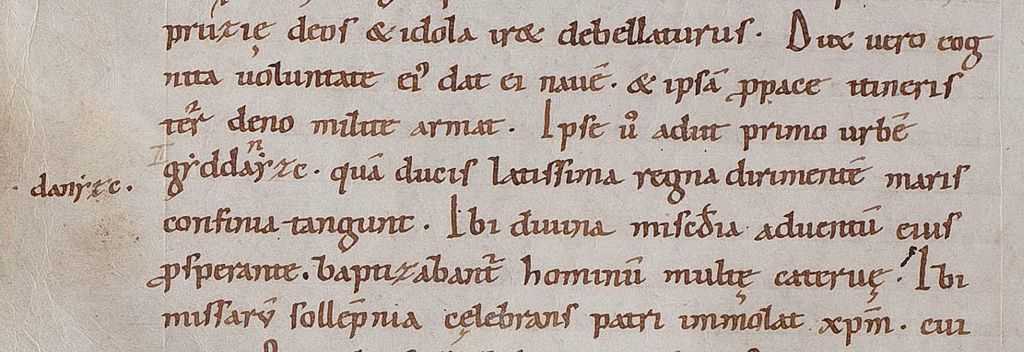 pruzię deos & idola itæ debellaturus. Dux vero cog
nita voluntate ei᾽ dat ei navē. & ipsā ꝓpace itineris
terͬ deno milite armat. Ipse v̊ adiit primo urbē
gẏddanẏzc. quā ducis latissima regna dirimentē maris
· danẏzc ·
confinia tangunt. Ibi divina misc̄dia adventū eius
ꝓsperante. baptizabant᷑ hominū multę catervę. Ibi
missarū sollēpnia cęlebrans patri immolat xp̄m. cui